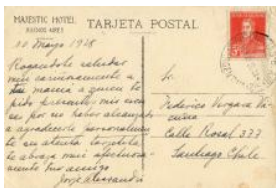 MAJESTIC HOTEL
BUENOS AIRES
TARJETA POSTAL
10 Marzo 1928
Rogandote saludar
muy cariñosamente a
tu mamá a quien le
pido presente mis
por no haber alcanzado
a agradecerle personalmente
su atenta tarjeta
te abraza muy afectuosa
mente tu amigo
Jorge Alessandri
Sr.
Federico Vergara Vi
cuña
Calle Rosal 377
Santiago Chile